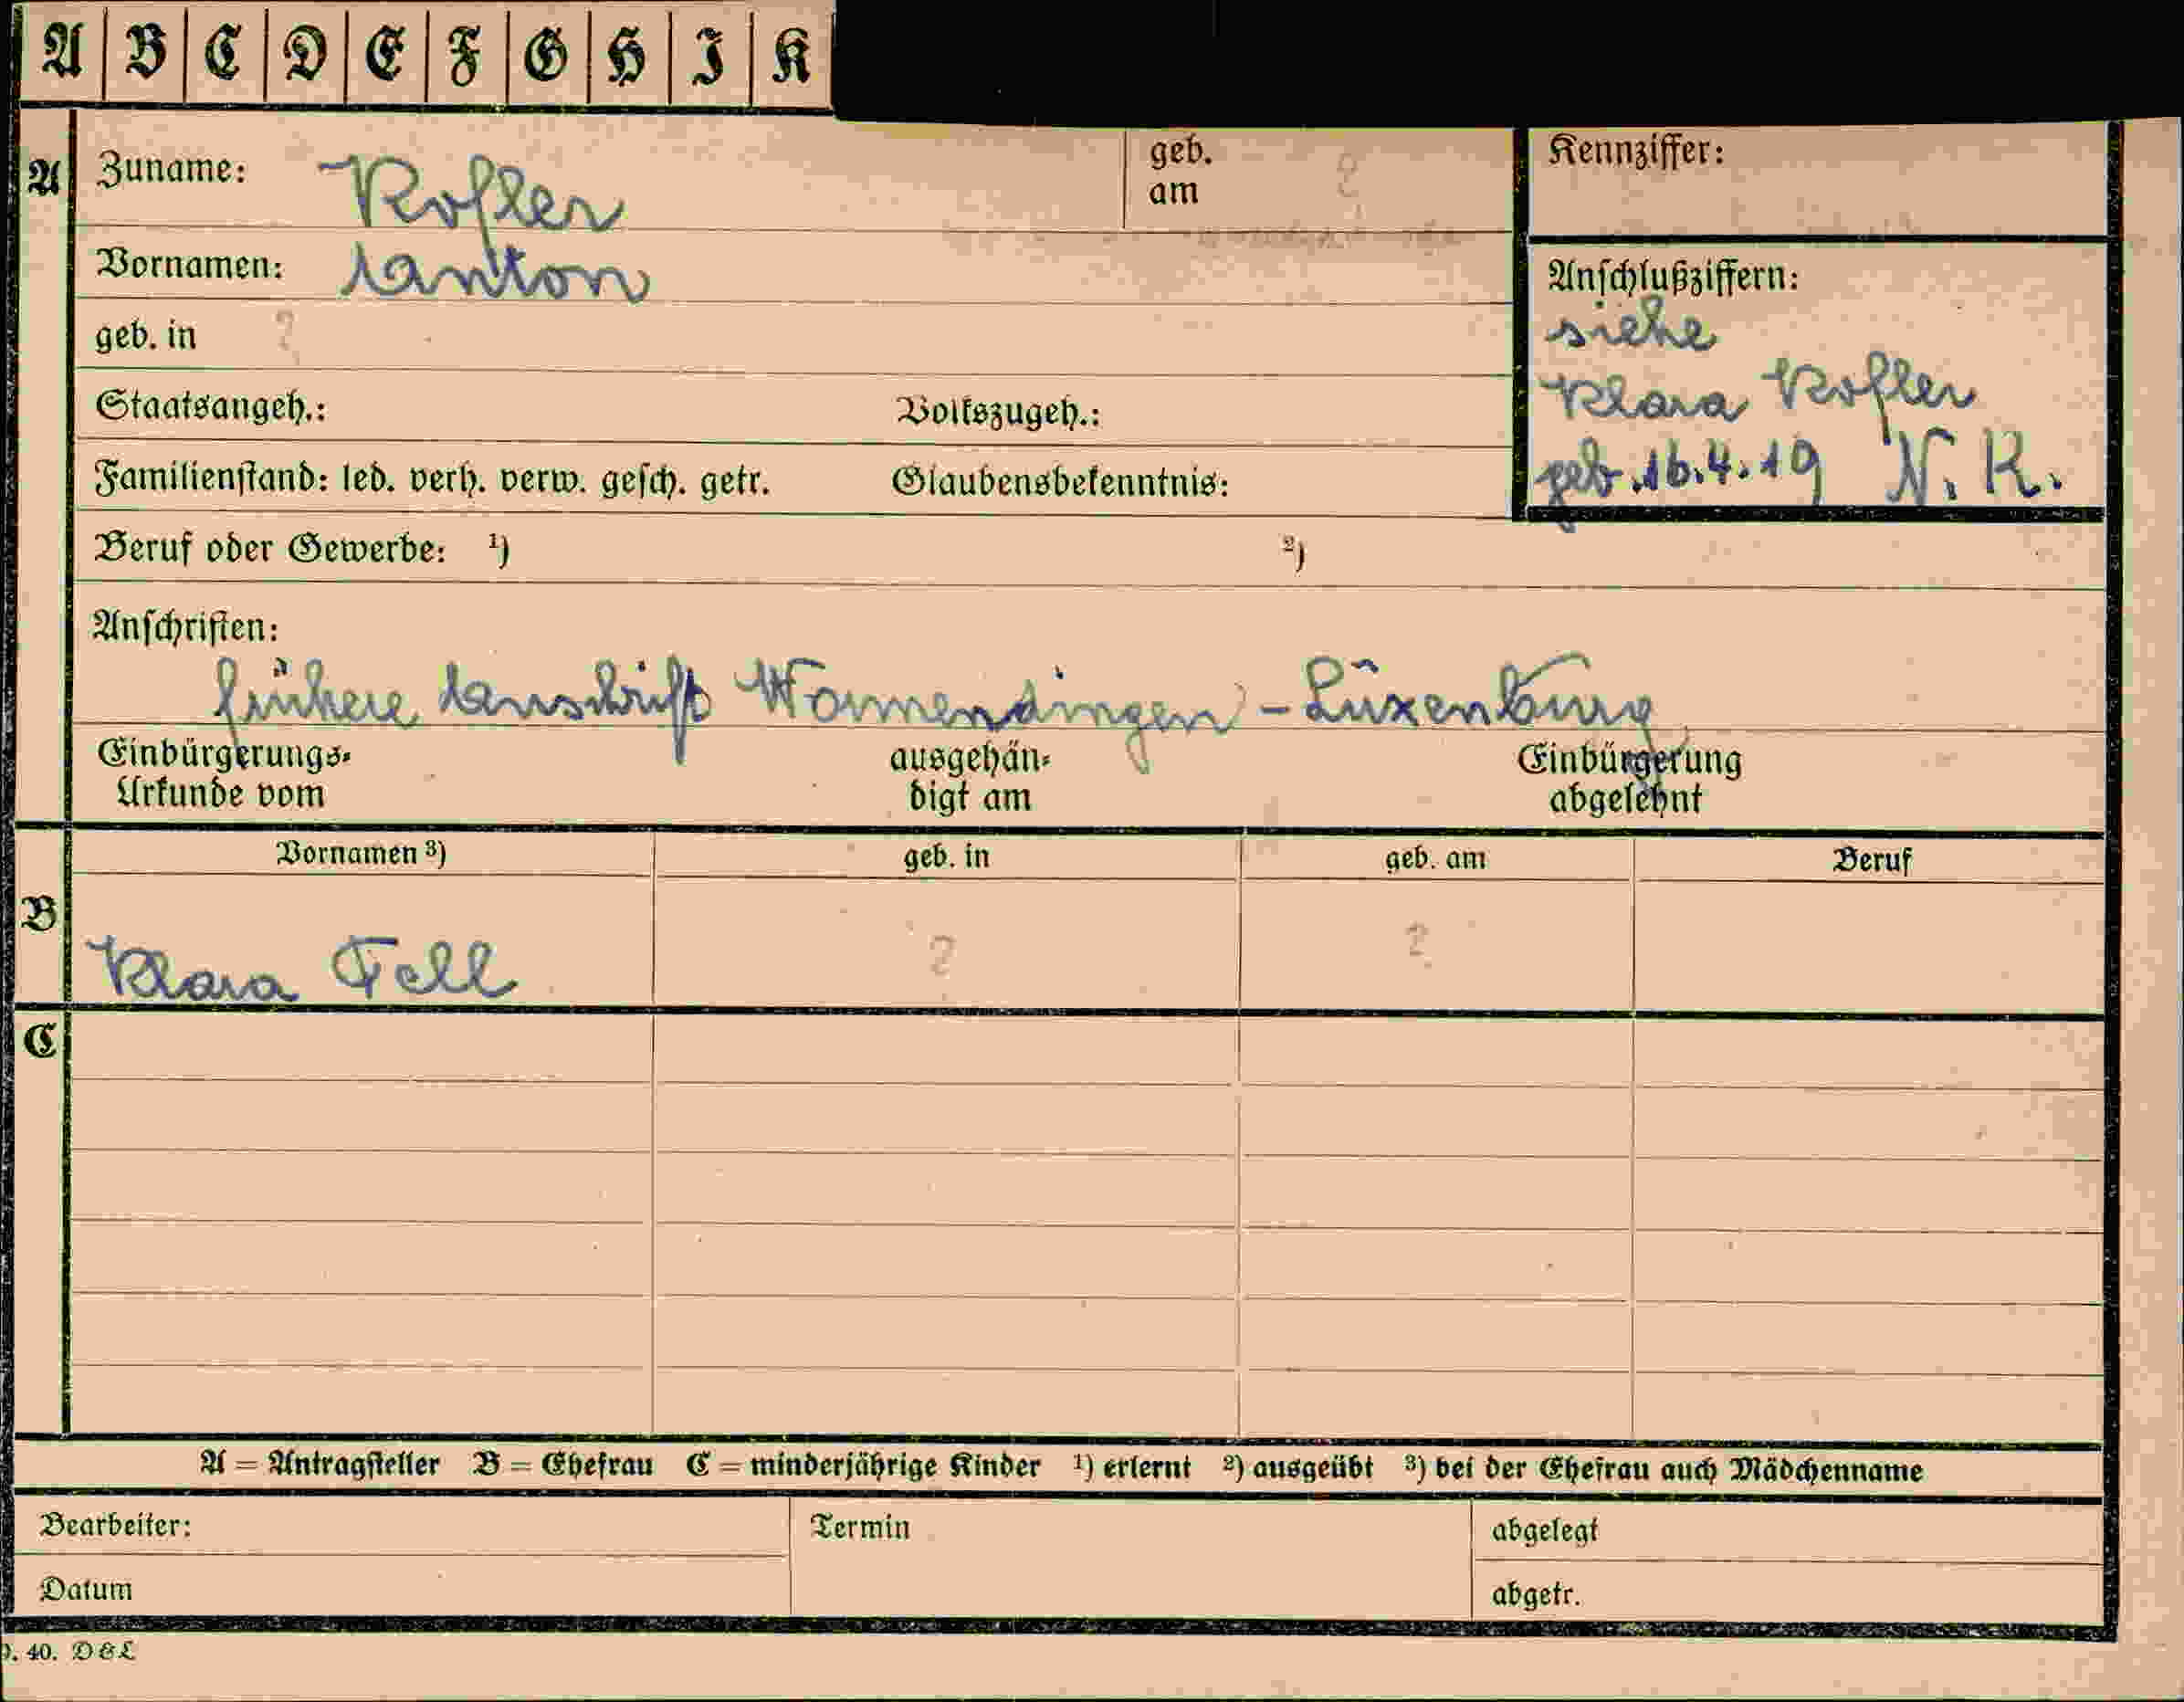 A B C D E F G H I K
A Zuname: Kofler geb. am ? Kennziffer:
Vornamen: Anton
Anschlußziffern:
siehe
Klara Kofler
geb. 16.4.19 N. K.
geb. in ?
Staatsangeh.: Volkszugeh.:
Familienstand: led. verh. verw. gesch. getr. Glaubensbekenntnis:
Beruf oder Gewerbe: ¹) ²)
Anschriften:
frühere Anschrift Wormendingen - Luxenburg
Einbürgerungs- ausgehän- Einbürgerung
Urkunde vom digt am abgelehnt
Vornamen ³) geb. in geb. am Beruf
B Klara Fell ? ?
C
A = Antragsteller B = Ehefrau C = minderjährige Kinder ¹) erlernt ²) ausgeübt ³) bei der Ehefrau auch Mädchenname
Bearbeiter: Termin abgelegt
Datum abgetr.
40. D&L